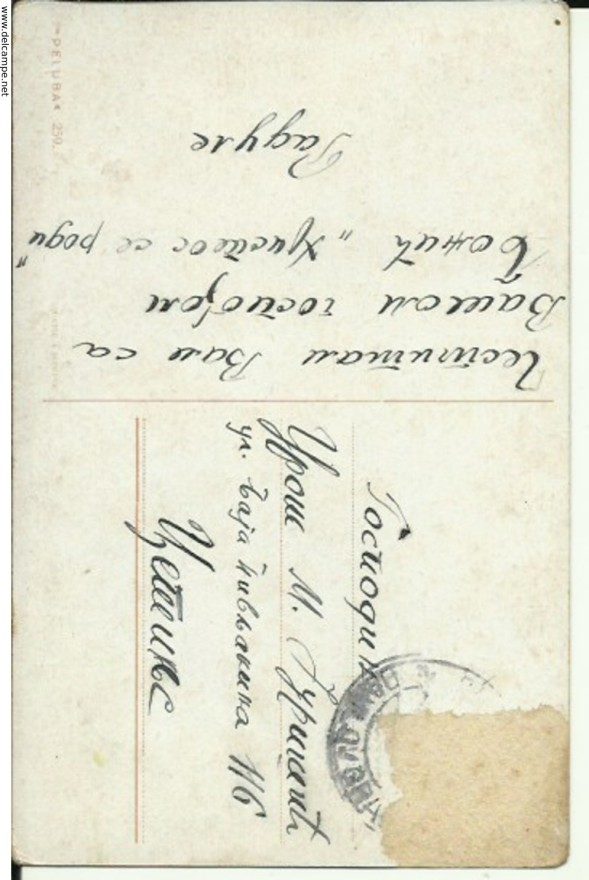 www.delcampe.net
"PELUBA" 259.
Честитам Вам са
Вашом госпођом
Божић „Христос се роди"
Радуле
Господин
Урош М.
ул. Баја Пивљанина 116
Цетиње